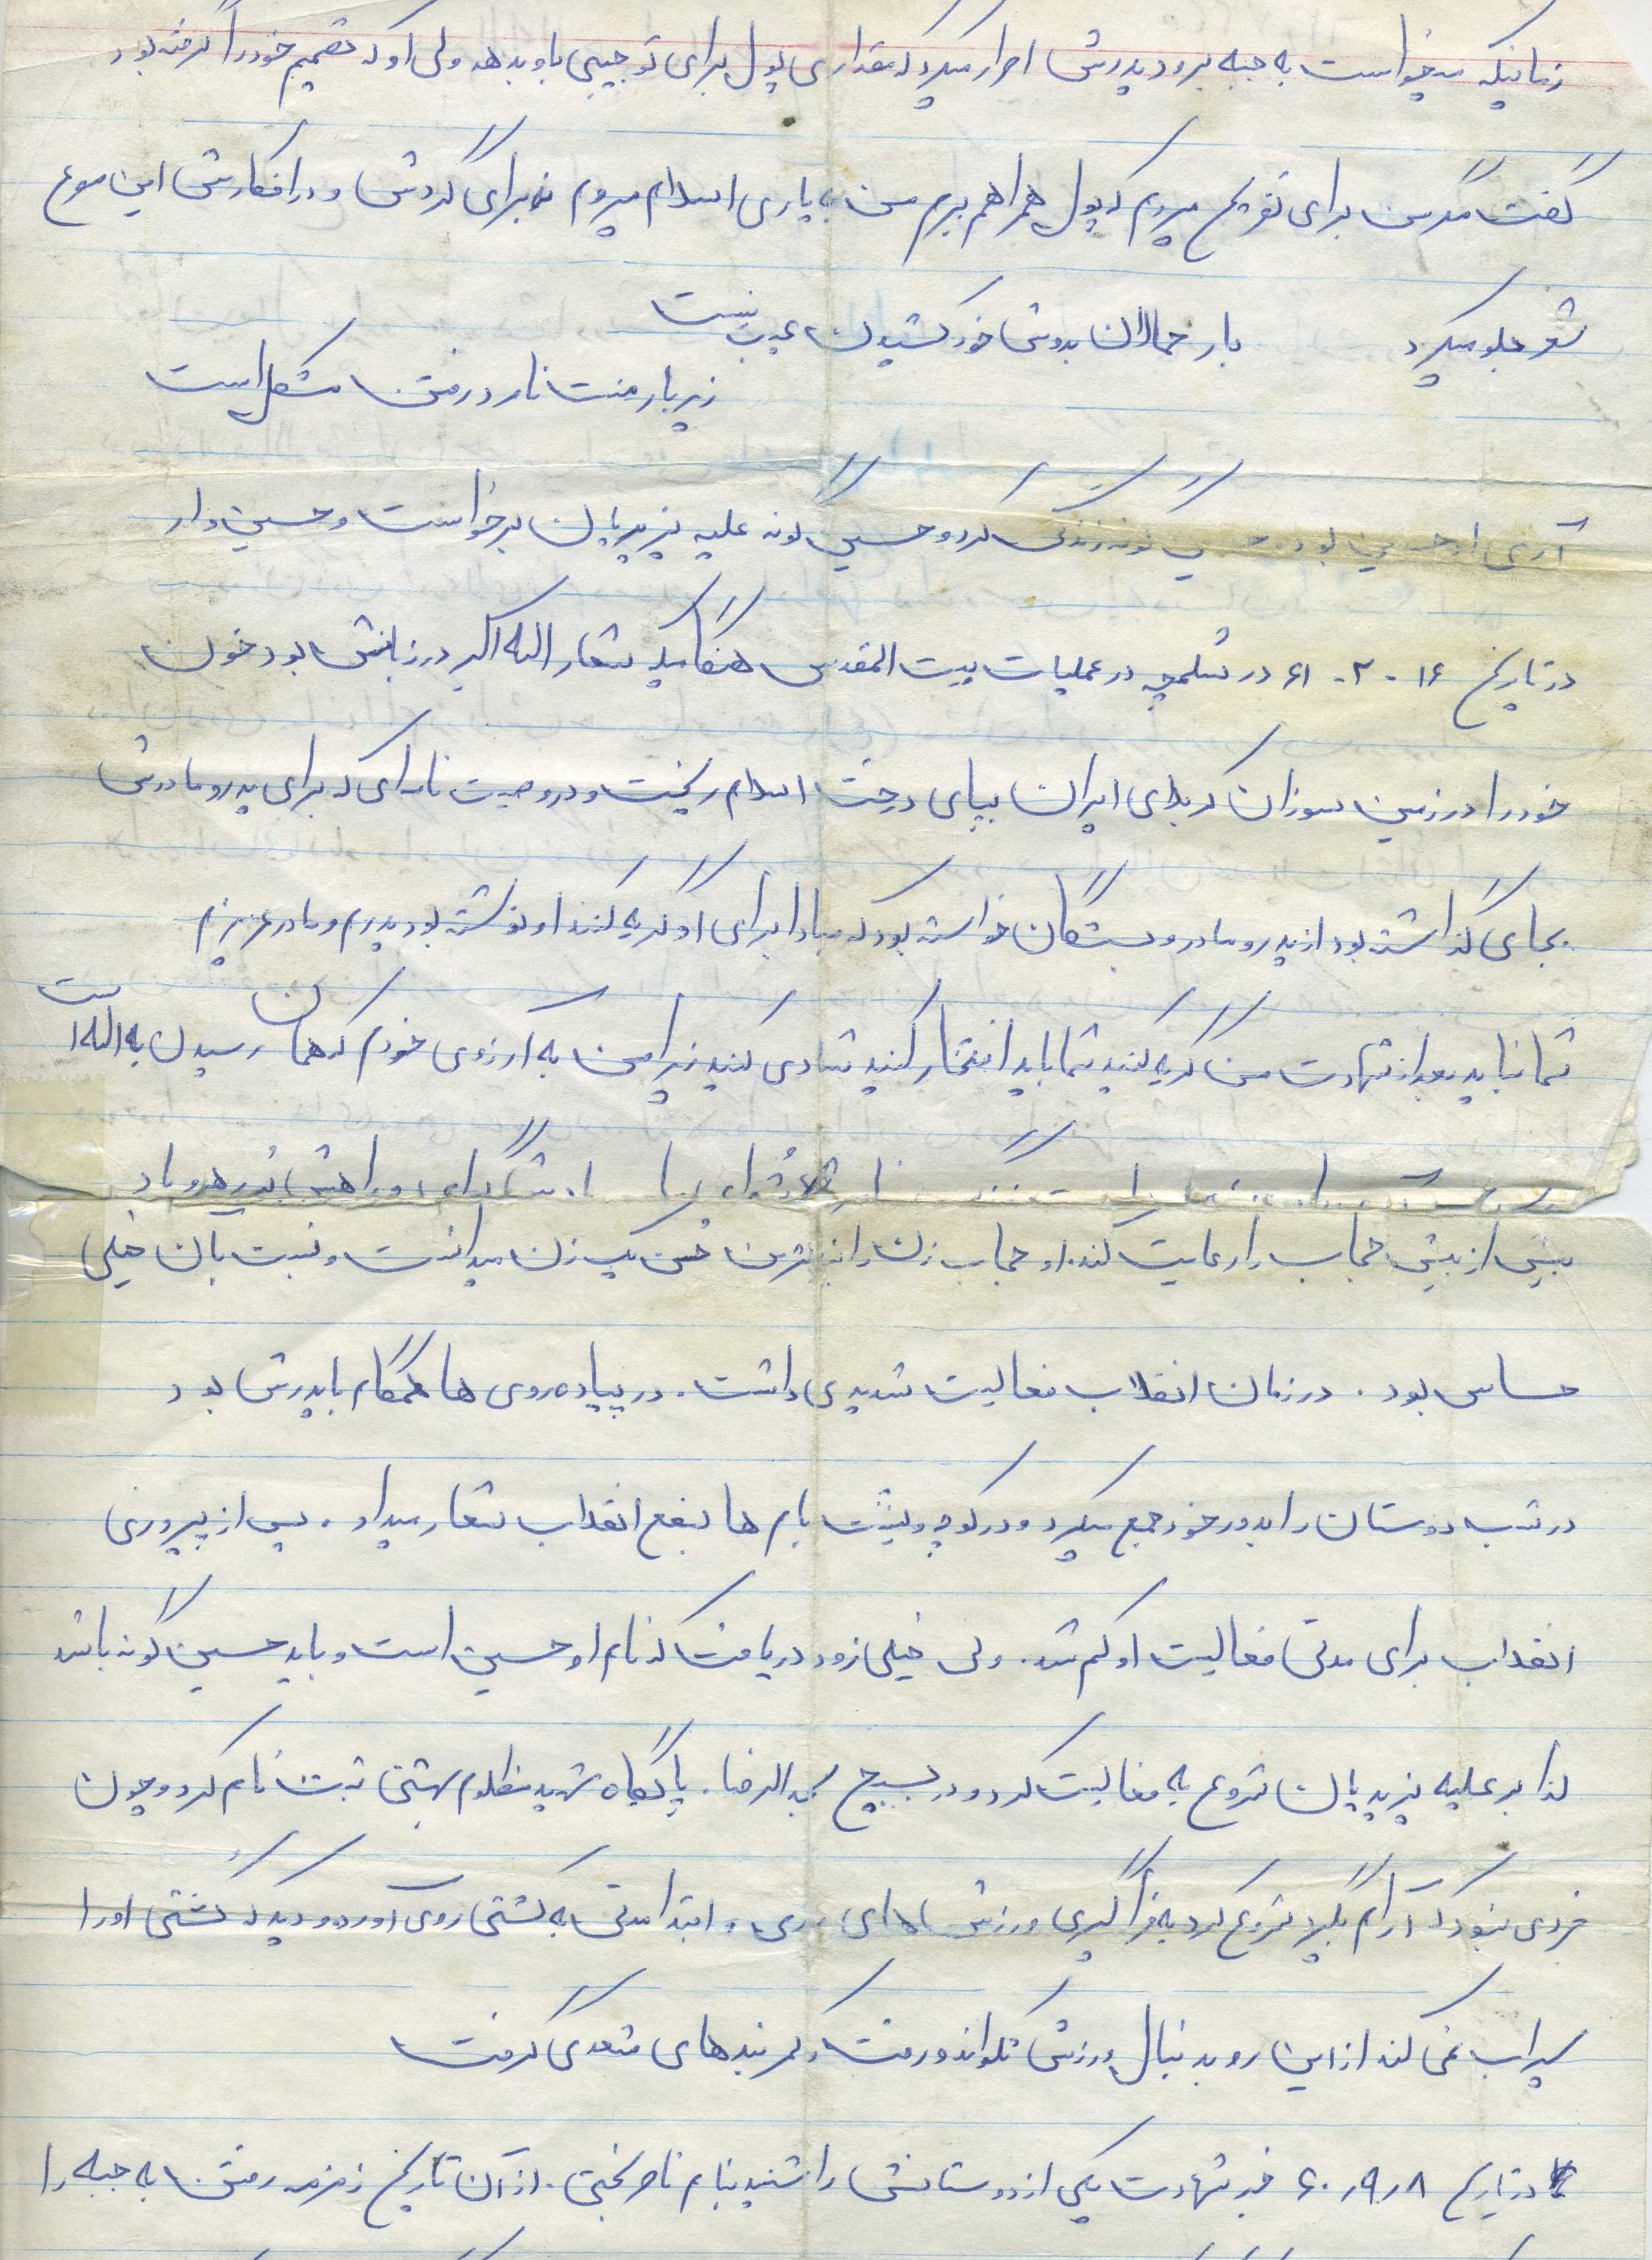 زمانیکه میخواست به جبهه برود پدرش اصرار میکرد که مقداری پول برای تو جیبی باو بدهد ولی او که تصمیم خود را گرفته بود
گفت مگر من برای تفریح میروم که پول همراهم ببرم من به یاری اسلام میروم نه برای گردش و در افکارش این
شعر جلو میکرد
بار حمالان بدوش خود کشیدن عیب نیست
زیر بار منت نامرد رفتن مشکل است
آری او حسین بود گونه زندگی کرد و حسین گونه علیه یزیدیان برخواست و حسین وار
در تاریخ ۱۶-۲-۶۱ در شلمچه در عملیات بیت المقدس هنگامیکه شعار الله اکبر در زبانش بود خون
خود را در زمین سوزان کربلای ایران بپای درخت اسلام ریخت و در وصیت نامه ای که برای پدر و مادرش
بجای گذاشته بود از پدر و مادر و بستگان خواسته بود که مبادا برای او گریه کنند او نوشته بود پدرم و مادر عزیزم
شما نباید بعد از شهادت من گریه کنید شما باید افتخار کنید شادی کنید زیرا من به آرزوی خودم که همان رسیدن به الله است
بیش از پیش حجاب را رعایت کند. او حجاب زن را بهترین حسن یک زن میدانست و نسبت بآن خیلی
حساس بود . در زمان انقلاب فعالیت شدیدی داشت . در پیاده روی ها همگام با پدرش بود
در شب دوستان را بدور خود جمع میکرد و در کوچه و پشت بام ها بنفع انقلاب شعار میداد . پس از پیروزی
انقلاب برای مدتی فعالیت او کم شد . ولی خیلی زود دریافت که نام او حسین است و باید حسین گونه باشد
لذا بر علیه یزیدیان شروع به فعالیت کرد و در بسیج عبدالرضا . پایگاه شهید مظلوم بهشتی ثبت نام کرد و چون
فردی نبود که آرام بگیرد شروع کرد به فراگیری ورزش های رزمی . ابتدا مدتی به کشتی روی آورد و دید که کشتی او را
سیراب نمی کند از این رو بدنبال ورزش تکواندو رفت و کمربندهای متعددی گرفت
در تاریخ ۶۰٫۹٫۸ خبر شهادت یکی از دوستانش را شنید بنام ناصر بختی . از آن تاریخ زمزمه رفتن به جبهه را